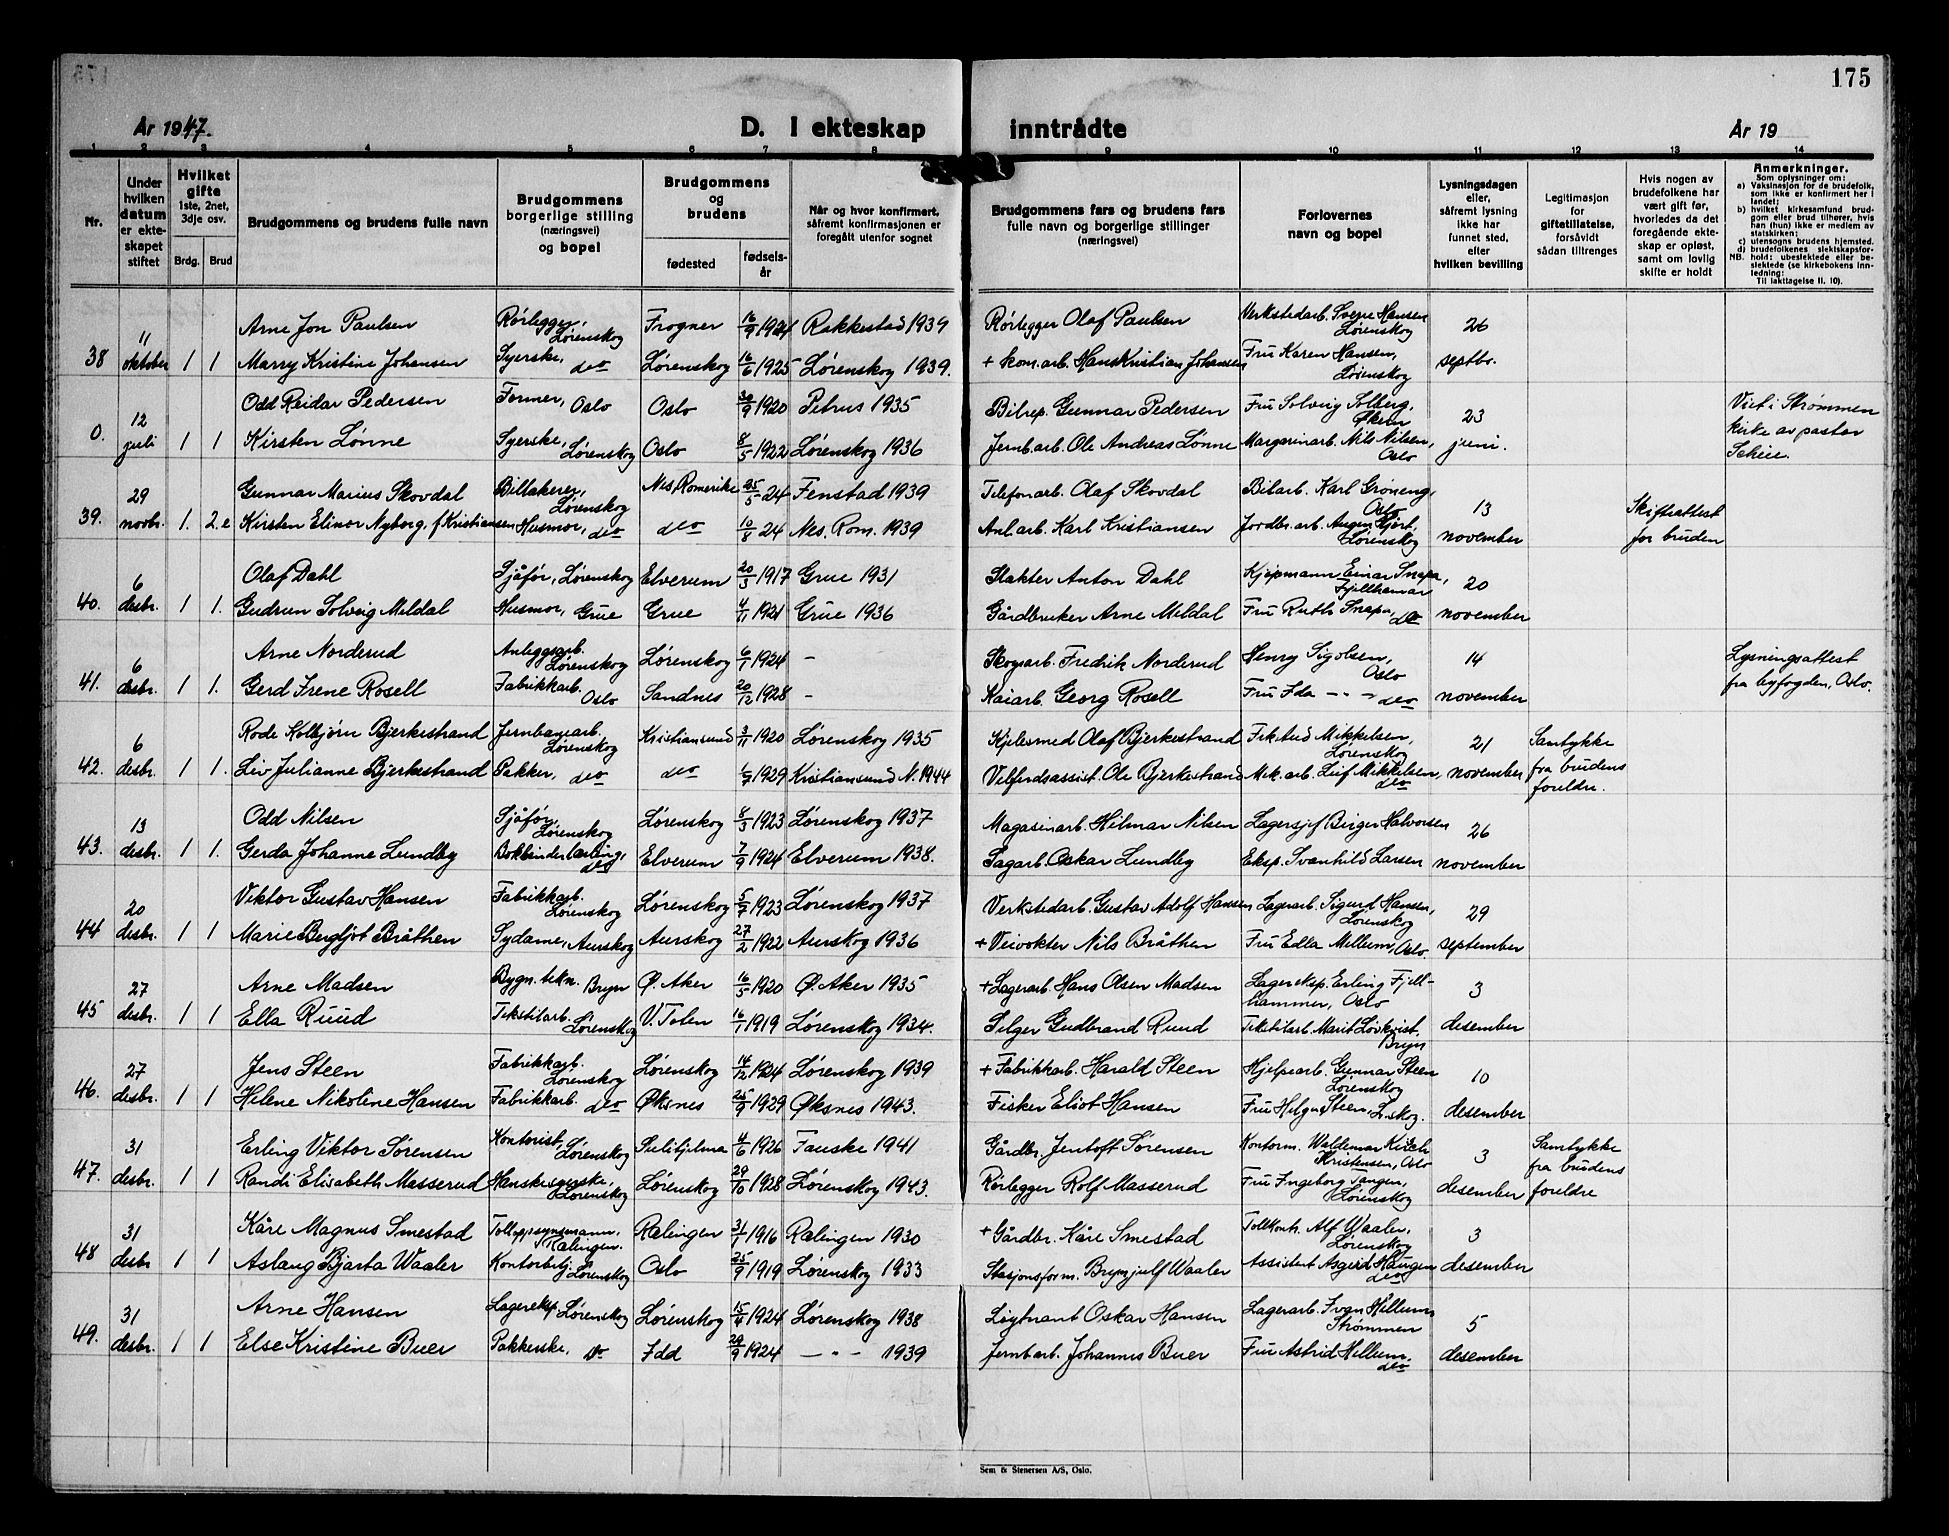 175
År 1947.
D. I ekteskap inntrådte
År 19
1 2 3 4 5 6 7 8 9 10 11 12 13 14
Nr.
Under hvilken datum er ekteskapet stiftet
Hvilket gifte 1ste, 2net, 3dje osv.
Brdg. Brud
Brudgommens og brudens fulle navn
Brudgommens borgerlige stilling (næringsvei) og bopel
Brudgommens og brudens
fødested
fødselsår
Når og hvor konfirmert, såfremt konfirmasjonen er foregått utenfor sognet
Brudgommens fars og brudens fars fulle navn og borgerlige stillinger (næringsvei)
Forlovernes navn og bopel
Lysningsdagen eller, såfremt lysning ikke har funnet sted, efter hvilken bevilling
Legitimasjon for giftetillatelse, forsåvidt sådan tiltrenges
Hvis nogen av brudefolkene har vært gift før, hvorledes da det foregående ekteskap er opløst, samt om lovlig skifte er holdt
Anmerkninger.
Som oplysninger om:
a) Vaksinasjon for de brudefolk, som ikke er konfirmert her i landet;
b) hvilket kirkesamfund brudgom eller brud tilhører, hvis han (hun) ikke er medlem av statskirken;
c) utensogns brudens hjemsted.
d) brudefolkenes slektskapsforhold: ubeslektede eller beslektede (se kirkebokens innledning:
NB. Til iakttagelse II. 10).
11 Arne Jon Paulsen Rørlegger, Lørenskog Frogner 16/9 1924 Rakkestad 1939 Rørlegger Olaf Paulsen Verkstedarb. Sverre Hansen Lørenskog 26
38 oktober 1 1 Marry Kristine Johansen Syerske, do Lørenskog 16/6 1925 Lørenskog 1939. + kom.arb. Hans Kristian Johansen Fru Karen Hansen, Lørenskog septbr.
12 Odd Reidar Pedersen Former, Oslo Oslo 30/9 1920 Petrus 1935 Bilrep. Gunnar Pedersen Fru Solveig Solberg, 23 Viet i Strømmen
0. juli 1 1 Kirsten Lønne Syerske, Lørenskog Oslo 8/5 1922 Lørenskog 1936 Jernb.arb. Ole Andreas Lønne Margarinarb. Nils Nilsen, Oslo juni. kirke av pastor Scheie.
29 Gunnar Marius Skovdal Billakerer, Lørenskog Nes Romerike 25/5 24 Fenstad 1939 Telefonarb. Olaf Skovdal Bilarb. Karl Grøneng, Oslo 13 Skifteattest
39. novbr. 1. 2.e Kirsten Elinor Nyborg, f. Kristiansen Husmor, do do 10/8 24 Nes. Rom. 1939 Anl.arb. Karl Kristiansen Jordbr.arb. Lørenskog november for bruden
6 Olaf Dahl Sjåfør, Lørenskog Elverum 20/3 1917 Grue 1931 Slakter Anton Dahl Kjøpmann Einar Snapa, Fjellhamar 20
40. desbr. 1 1. Gudrun Solveig Meldal Husmor, Grue Grue 4/11 1921 Grue 1936 Gårdbruker Arne Meldal Fru Ruth Snapa, do november
6 Arne Norderud Anleggsarb. Lørenskog Lørenskog 6/1 1924 – Skogsarb. Fredrik Norderud Henry Sigolsen, Oslo 14 Lysningsattest
41. desbr. 1 1. Gerd Irene Rosell Fabrikkarb. Oslo Sandnes 20/12 1928 – Kaiarb. Georg Rosell Fru Ida – " – do november fra byfogden, Oslo.
6 Rode Kolbjørn Bjerkestrand Jernbanearb. Lørenskog Kristiansund 3/11 1920 Lørenskog 1935 Kjelesmed Olaf Bjerkestrand Mikkelsen, Lørenskog 21 Samtykke
42. desbr. 1 1. Liv Julianne Bjerkestrand Pakker, do do 1/9 1929 Kristiansund N. 1944 Velferdsassist. Ole Bjerkestrand Mek.arb. Leif Mikkelsen, do november fra brudens foreldre.
13 Odd Nilsen Sjåfør, Lørenskog Lørenskog 8/3 1923 Lørenskog 1937 Magasinarb. Hilmar Nilsen Lagersjef Birger Halvorsen 26
43. desbr. 1 1. Gerda Johanne Lundby Bokbinderlærling, do Elverum 7/9 1924 Elverum 1938. Sagarb. Oskar Lundby Eksp. Svanhild Larsen november
20 Viktor Gustav Hansen Fabrikkarb. Lørenskog Lørenskog 5/7 1923 Lørenskog 1937 Verkstedarb. Gustav Adolf Hansen Lagerarb. Sigurd Hansen, Lørenskog 29
44 desbr. 1 1 Marie Bergljot Bråthen Sydame, Aurskog Aurskog 27/2 1922 Aurskog 1936 + Veivokter Nils Bråthen Fru Edla Mellum, Oslo september
27 Arne Madsen Bygn.tekn. Bryn Ø. Aker 16/5 1920 Ø. Aker 1935 + Lagerarb. Hans Olsen Madsen Lagereksp. Erling Fjellhammer, Oslo 3
45 desbr. 1 1 Ella Ruud Tekstilarb. Lørenskog V. Toten 16/1 1919 Lørenskog 1934. Selger Gudbrand Ruud Tekstilarb. Marit Løvkvist, Bryn desember
27 Jens Steen Fabrikkarb. Lørenskog Lørenskog 14/12 1924 Lørenskog 1939 + Fabrikkarb. Harald Steen Hjelpearb. Gunnar Steen Lørenskog 10
46. desbr. 1 1 Helene Nikoline Hansen Fabrikkarb. do Øksnes 25/9 1929 Øksnes 1943. Fisker Eliot Hansen Fru Helga Steen, L.skog. desember
31 Erling Viktor Sørensen Kontorist, Lørenskog Sulitjelma 4/6 1926 Fauske 1941 Gårdbr. Jentoft Sørensen Kontorm. Waldemar Kirch Kristensen, Oslo 3 Samtykke
47. desbr. 1 1 Randi Elisabeth Masserud Hanskesyerske, Lørenskog Lørenskog 29/10 1928 Lørenskog 1943. Rørlegger Rolf Masserud Fru Ingeborg Tangen, Lørenskog desember fra brudens foreldre
31 Kåre Magnus Smestad Tolloppsynsmann, Rælingen. Rælingen 31/1 1916 Rælingen 1930 + Gårdbr. Kåre Smestad Tollkontr. Alf Waaler, Lørenskog 3
48 desbr 1 1 Aslaug Bjarta Waaler Kontorbetj. Lørenskog Oslo 25/9 1919 Lørenskog 1933 Stasjonsform. Brynjulf Waaler Assistent Asgerd Haugen do desember
31 Arne Hansen Lagereksp. Lørenskog Lørenskog 15/4 1924 Lørenskog 1938 Løytnant Oskar Hansen Lagerarb. Ivan Hellum Strømmen 5
49. desbr. 1 1 Else Kristine Buer Pakkerske, do Idd 29/9 1924 – " – 1939 Jernb.arb. Johannes Buer Fru Astrid Hellum, do desember
Sem & Stenersen A/S, Oslo.